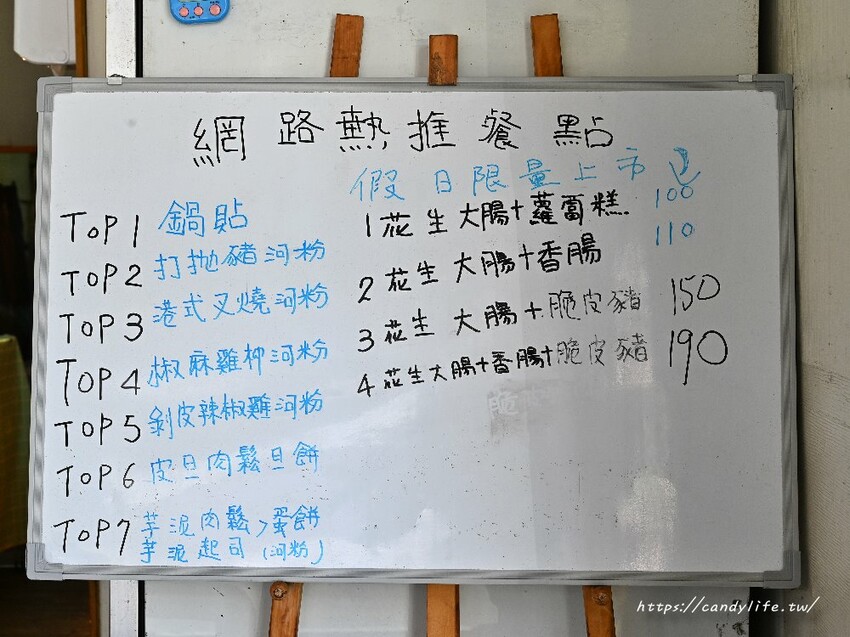 網路熱推餐點
TOP1 鍋貼
TOP2 打拋豬河粉
TOP3 港式叉燒河粉
TOP4 椒麻雞柳河粉
TOP5 剝皮辣椒雞河粉
TOP6 皮旦肉鬆旦餅
TOP7 芋泥肉鬆>蛋餅
芋泥起司(河粉)
假日限量上市
1 花生大腸+蘿蔔糕 100
2 花生大腸+香腸 110
3 花生大腸+脆皮豬 150
4 花生大腸+香腸+脆皮豬 190
https://candylife.tw/